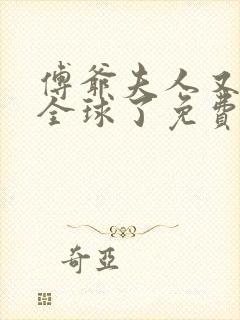 傅爺夫人又
全球了免費
奇亞